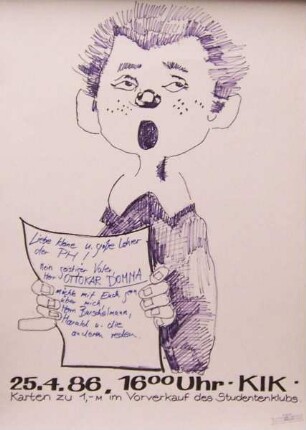 Liebe kleine u. große Lehrer
der PH!
Mein geistiger Vater,
Herr OTTOKAR DOMNA
möchte mit Euch gern
über mich
Herrn Burschelmann,
Harald u. die
anderen reden.
25.4.86, 16⁰⁰ Uhr · KIK ·
Karten zu 1,-M im Vorverkauf des Studentenklubs